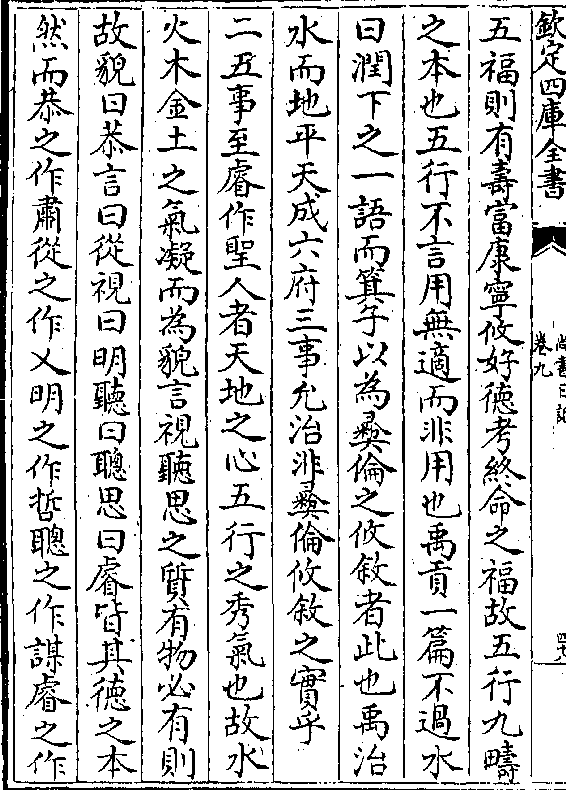 欽定四庫全書
尚書日記
卷九
五福則有壽富康寧攸好德考終命之福故五行九疇
之本也五行不言用無適而非用也禹貢一篇不過水
曰潤下之一語而箕子以為彛倫之攸敘者此也禹治
水而地平天成六府三事允治非彛倫攸敘之實乎
二五事至睿作聖人者天地之心五行之秀氣也故水
火木金土之氣凝而為貌言視聽思之質有物必有則
故貌曰恭言曰從視曰明聽曰聰思曰睿皆其德之本
然而恭之作肅從之作乂明之作哲聰之作謀睿之作